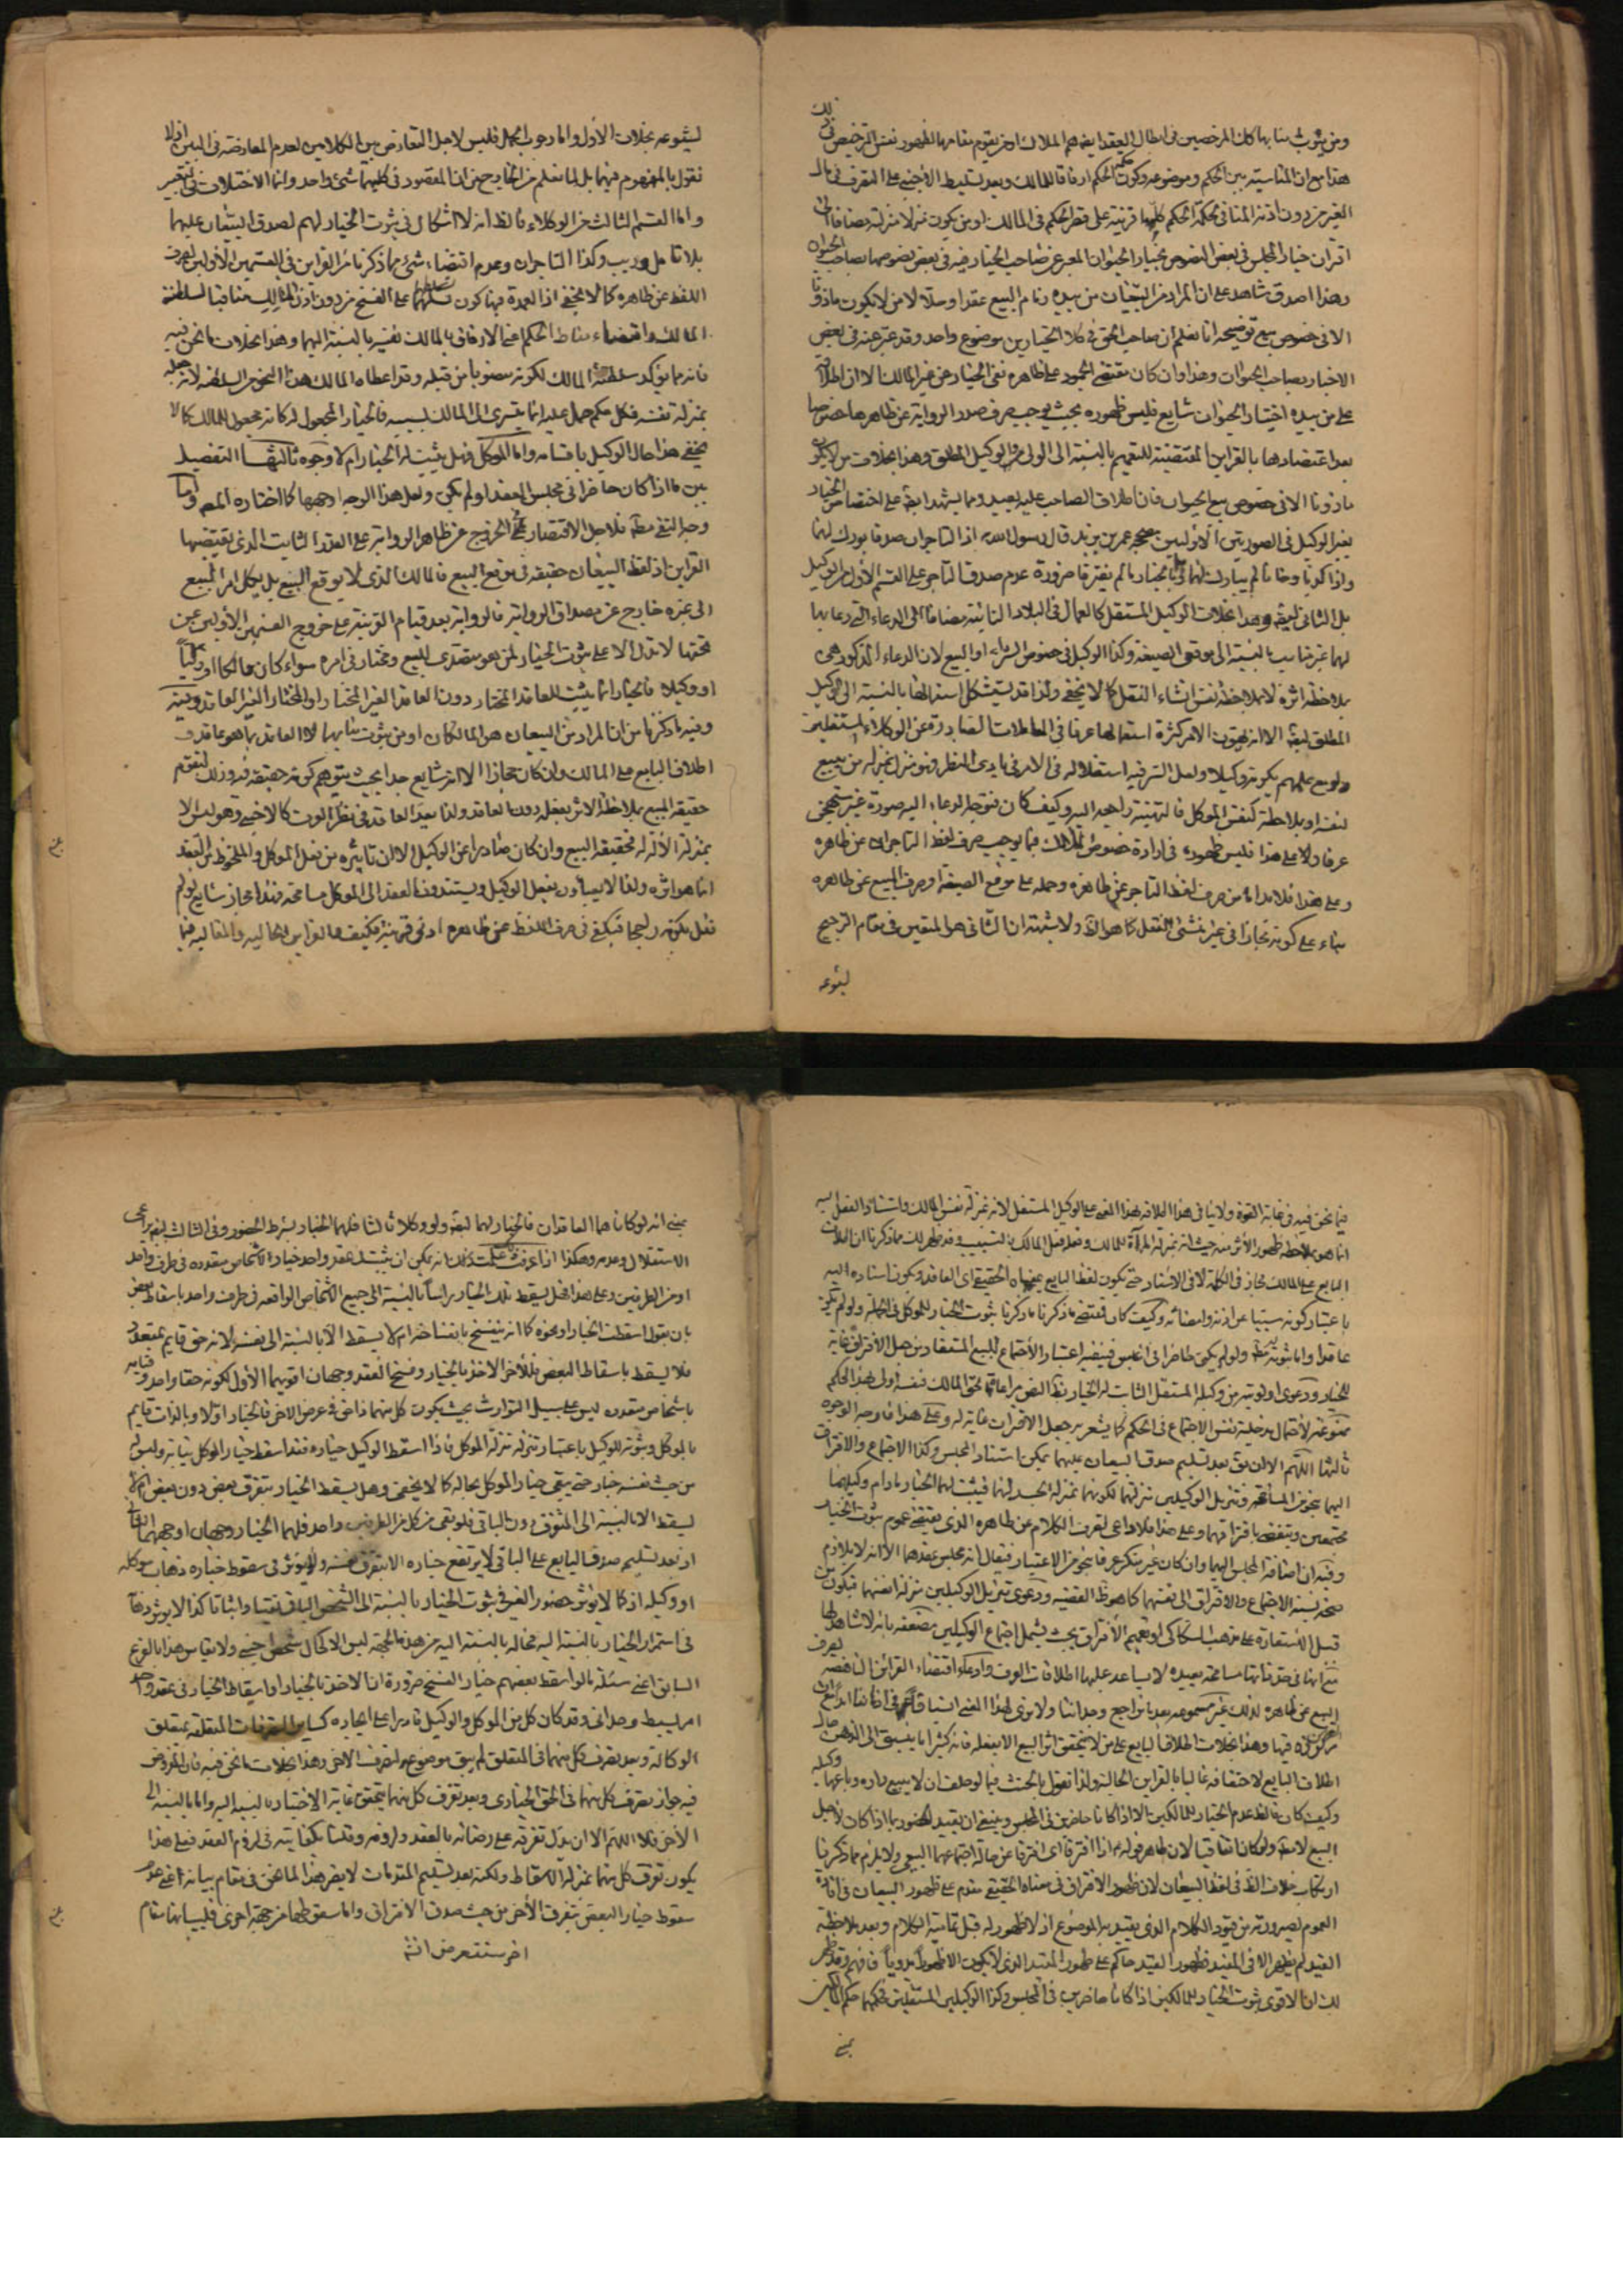 ومن يثوب منابهما كان المرخصين في ابطال العقد ايضاهم الملاك او من يقوم مقامهما لظهور نفس الترخيص في ذلك
هذا مع ان المناسبة بين الحكم وموضوعه وكون الحكم ارفاقا للمالك وبعد تسليط الاجنبي على التصرف في مال
الغير من دون اذنه المنافي لحكمة الحكم كلها قرينة على قصر الحكم في المالك او من يكون منزلا منزلته مضافا الى
اقتران خيار المجلس في بعض النصوص بخيار الحيوان المعبر عن صاحب الخيار فيه في بعض نصوصهما بصاحب الحيوان
وهذا اصدق شاهد على ان المراد من البيعان من بيده زمام البيع عقدا وحلا لا من لا يكون ماذونا
الا في خصوص بيع توضيحه انا نعلم ان صاحب الحق في كلا الخيارين موضوع واحد وقد عبر عنه في بعض
الاخبار بصاحب الحيوان وهذا وان كان مقتضى الجمود على ظاهره نفي الخيار عن غير المالك الا ان اطلاقه
على من بيده اختيار الحيوان شايع فليس ظهوره بحيث يوجب صرف صدر الرواية عن ظاهرها خصوصا
بعد اعتضادها بالقراين المقتضية للتعميم بالنسبة الى الولي والوكيل المطلق وهذا بخلاف من لا يكون
ماذونا الا في خصوص بيع الحيوان فان اطلاق الصاحب عليه بعيد ومما يشهد ايضا على اختصاص الخيار
بغير الوكيل في الصورتين الأوليين صحيح عمر بن يزيد قال رسول الله اذا التاجران صدقا بورك لهما
واذا كذبا وخانا لم يبارك لهما وهما بالخيار ما لم يفترقا ضرورة عدم صدق التاجر على القسم الأول من الوكيل
بل الثاني ايضا وهذا بخلاف الوكيل المستقل كالعمال في البلاد النائية مضافا الى ان الدعاء الذي دعا بها
لهما غير مناسب بالنسبة الى موقعي الصيغة وكذا الوكيل في خصوص الشراء او البيع لان الدعاء المذكور هي
بملاحظة اثره لا بملاحظة نفس انشاء النقل كما لا يخفى ولذا قد يستشكل استعمالها بالنسبة الى الوكيل
المطلق ايضا الا انه يهون الامر كثرة استعمالها عرفا في المعاملات الصادرة عن الوكلاء المستقلين
ولو مع علمهم بكونه وكيلا ولعل السر فيه استقلاله في الامر في بادي النظر فهو منزل بمنزلة من يبيع
لنفسه او بملاحظة كنفس الموكل فالتهنية راجعة اليه وكيف كان فتوجه الدعاء اليه صورة غير مستهجن
عرفا ولا على هذا فليس ظهوره في ارادة خصوص الملاك مما يوجب صرف لفظ التاجران عن ظاهره
وعلى هذا فلا بد اما من صرف لفظ التاجر عن ظاهره وحمله على موقع الصيغة او صرف البيع عن ظاهره
بناء على كونه مجازا في غير منشئ النقل كما هو الظ ولا شبهة ان الثاني هو المتعين في مقام الترجيح
لشيوعه
لشيوعه بخلاف الأول واما وجوب الحمل فليس لاجل التعارض بين الكلامين لعدم المعارضة في البين اذ لا
نقول بالمفهوم فيهما بل لما نعلم من الخارج من ان المقصود في كليهما شئ واحد وانما الاختلاف في التعبير
واما القسم الثالث من الوكلاء فالظ انه لا اشكال في ثبوت الخيار لهم لصدق البيعان عليهما
بلا تامل وريب وكذا التاجران وعدم اقتضاء شئ مما ذكرنا من القراين في القسمين الأولين لصرف
اللفظ عن ظاهره كما لا يخفى اذ العمدة فيها كون تسلطهما على الفسخ من دون اذن المالك منافيا لسلطنة
المالك واقتضاء مناط الحكم اعني الارفاق بالمالك نفيه بالنسبة اليهما وهذا بخلاف ما نحن فيه
فانه مما يؤكد سلطنة المالك لكونه منصوبا من قبله وقد اعطاه المالك هذا النحو من السلطنة لانه جعله
بمنزلة نفسه فكل حكم حمل عليه انما يتسرى الى المالك بسببه فالخيار المجعول له كانه مجعول للمالك كما لا
يخفى هذا حال الوكيل باقسامه واما الموكل فهل يثبت له الخيار ام لا وجوه ثالثها التفصيل
بين ما اذا كان حاضرا في مجلس العقد او لم يكن ولعل هذا الوجه اوجهها كما اختاره المص واما
وجه النفي مط فلاجل الاقتصار في الخروج عن ظاهر الرواية على القدر الثابت الذي يقتضيها
القراين اذ لفظ البيعان حقيقة في موقع البيع فالمالك الذي لا يوقع البيع بل يكل امر البيع
الى غيره خارج عن مصداق الرواية فالرواية بعد قيام القرينة على خروج القسمين الأولين من
تحتها لا تدل الا على ثبوت الخيار لمن هو متصدى للبيع ومختار في امره سواء كان مالكا او وليا
او وكيلا فالخيار انما يثبت للعاقد المختار دون العاقد الغير المختار او المختار الغير العاقد وفيه
وفيه ما ذكرنا من ان المراد من البيعان هو المالكان او من يثوب منابهما لا العاقد بما هو عاقد و
اطلاق البايع على المالك وان كان مجازا الا انه شايع جدا بحيث يتوهم كونه حقيقة فيه وذلك لتقوم
حقيقة البيع بملاحظة الاثر بفعله دون العاقد ولذا يعد العاقد في نظر العرف كالاجنبي وهو ليس الا
بمنزلة الآلة له فحقيقة البيع وان كان صادرا عن الوكيل الا ان تاثيره من فعل الموكل والملحوظ من العقد
انما هو اثره ولذا لا يبالون بفعل الوكيل ويستندون العقد الى الموكل مسامحة فهذا مجاز شايع لو لم
نقل بكونه راجحا فيكفي في صرف اللفظ عن ظاهره ادنى قرينة فكيف بالقراين الحالية والمقالية فيما
فيما نحن فيه في غاية القوة ولا ينافي هذا اطلاقه بهذا المعنى على الوكيل المستقل لانه بمنزلة نفس المالك واستناد الفعل اليه
انما هو بملاحظة ظهور الأثر منه حيث انه بمنزلة المرآة للمالك وفعله فعل المالك بالتسبيب وقد ظهر لك مما ذكرنا ان اطلاق
البايع على المالك مجاز في الكلمة لا في الاسناد حتى يكون لفظ البايع بمعناه الحقيقي اي العاقد ويكون اسناده اليه
باعتبار كونه سببيا عن اذنه وامضائه وكيف كان فمقتضى ما ذكرنا ما ذكرنا ثبوت الخيار للموكل في الجملة ولو لم يكن
عاقدا واما ثبوته له ولو لم يكن حاضرا في المجلس فينفيه اعتبار الاجتماع للبيع المستفاد من جعل الافتراق غاية
للخيار ودعوى اولويته من وكيله المستقل الثابت له الخيار بنظ النص مراعاة لحق المالك فنفسه اولى بهذا الحكم
ممنوعة لاحتمال مدخلية نفس الاجتماع في الحكم كما يشعر به جعل الافتراق غاية له وعلى هذا فاوجه الوجوه
ثالثها اللهم الا ان يق بعد تسليم صدق البيعان عليهما يمكن استناد المجلس وكذا الاجتماع والافتراق
اليهما بنحو من المسامحة وتنزيل الوكيلين منزلتهما لكونهما بمنزلة الجسد لهما فيثبت لهما الخيار مادام وكيلهما
مجتمعين وينقضي بافتراقهما وعلى هذا فلا داعي لصرف الكلام عن ظاهره الذي يقتضي عموم ثبوت الخيار
وفيه ان اضافة المجلس اليهما وان كان غير منكر عرفا بنحو من الاعتبار فيقال انه مجلس عقدهما الا انه لا يلازم
صحة نسبة الاجتماع والافتراق الى نفسهما كما هو ظ القضية ودعوى تنزيل الوكيلين منزلة انفسهما فيكون من
قبيل الاستعارة على مذهب السكاكي او تعميم الافتراق بحيث يشمل اجتماع الوكيلين مضعفة بانه لا شاهد لها
مع انها في حد ذاتها مسامحة بعيدة لا يساعد عليها اطلاقات العرف وادعاء اقتضاء القرائن الناهضة لصرف
البيع عن ظاهره لذلك غير مسموعة بعد ما نراجع وجداننا ولا نرى لهذا المعنى انسباقا في اذهاننا
مركوزة فيها وهذا بخلاف اطلاق البايع على من لا يتحقق اثر البيع الا بفعله فانه كثيرا ما ينسبق الى الذهن
اطلاق البايع لاحتفافه غالبا بالقراين الحالية ولذا نقول بالحنث فيما لو حلف ان لا يبيع داره وباعها وكيله
وكيف كان فالظ عدم الخيار للمالكين الا اذا كانا حاضرين في المجلس وينبغي ان يقيد الحضور بما اذا كان لاجل
البيع لا مط ولو كان اتفاقيا لان ظاهر قوله ع اذا افترقا اي افترقا عن حالة اجتماعهما البيعي ولا يلزم مما ذكرنا
ارتكاب خلاف الظ في لفظ البيعان لان ظهور الافتراق في معناه الحقيقي مقدم على ظهور البيعان في افادة
العموم لصيرورته من قيود الكلام الذي يقيد به الموضوع اذ لا ظهور له قبل تمامية الكلام وبعد ملاحظة
القيد لم يظهر الا في المقيد فظهور القيد حاكم على ظهور المقيد الذي لا يكون الا ظهورا بدويا فافهم وقد ظهر
لك ان الاقوى ثبوت الخيار للمالكين اذا كانا حاضرين في المجلس وكذا الوكيلين المستقلين فحكمهما حكم المالكين
بمعنى
بمعنى انه لو كانا هما العاقدان فالخيار لهما ايضا ولو وكلا ثالثا فلهما الخيار بشرط الحضور وفي الثالث ايضا يراعى
الاستقلال وعدمه وهكذا اذا عرفت ذلك علمت انه يمكن ان يثبت لعقد واحد خيارا لأشخاص متعدده في طرف واحد
او من الطرفين وعلى هذا فهل يسقط تلك الخيار براسا بالنسبة الى جميع الأشخاص الواقعة في طرف واحد باسقاط بعض
بان يقول اسقطت الخيار او نحوه كما انه ينفسخ بانفساخه ام لا يسقط الا بالنسبة الى نفسه لانه حق قايم بمتعدد
فلا يسقط باسقاط البعض فللأخر الاخذ بالخيار وفسخ العقد وجهان اقويهما الأول لكونه حقا واحدا وقيامه
باشخاص متعدده ليس على سبيل التوارث بحيث يكون كل منهما ذا حق في عرض الاخر فالخيار اولا وبالذات قايم
بالموكل وثبوته للوكيل باعتبار تنزله منزلة الموكل فاذا اسقط الوكيل خياره فقد اسقط خيار الموكل نيابة وليس له
من حيث نفسه خيار حتى يبقى خيار الموكل بحاله كما لا يخفى وهل يسقط الخيار بتفرق بعض دون بعض ام لا
يسقط الا بالنسبة الى المتفرق دون الباقي فلو بقي من كل من الطرفين واحد فلهما الخيار وجهان اوجههما الثاني
اذ بعد تسليم صدق البايع على الباقي لا يرتفع خياره الا بتفرق نفسه ولا يؤثر في سقوط خياره ذهاب موكله
او وكيله اذ كما لا يؤثر حضور الغير في ثبوت الخيار بالنسبة الى الشخص الباقي نفيا واثباتا كذا لا يؤثر ذهابه
في استمرار الخيار بالنسبة اليه فحاله بالنسبة اليه من هذه الجهة ليس الا كحال شخص اجنبي ولا يقاس هذا بالفرع
السابق اعني مسئلة ما لو اسقط بعضهم خيار الفسخ ضرورة ان الاخذ بالخيار او اسقاط الخيار في عقد واحد
امر بسيط وحداني وقد كان كل من الموكل والوكيل قادرا على ايجاده كساير التصرفات المتعلقة بمتعلق
الوكالة وبعد تصرف كل منهما في المتعلق لم يبق موضوع لتصرف الاخر وهذا بخلاف ما نحن فيه فان المفروض
فيه جواز تصرف كل منهما في الحق الخياري وبعد تفرق كل منهما يتحقق غاية الاختيار بالنسبة اليه واما بالنسبة الى
الأخر فلا اللهم الا ان يدل تفرقه على رضائه بالعقد ولزومه وقلنا بكفايته في لزوم العقد فعلى هذا
يكون تفرق كل منهما بمنزلة الاسقاط ولكنه بعد تسليم المقدمات لا يضر هذا لما نحن في مقام بيانه اعني عدم
سقوط خيار البعض بتفرق الأخر من حيث صدق الافتراق واما سقوطهما من جهة اخرى فلبيانها مقام
اخر ستتعرض انش